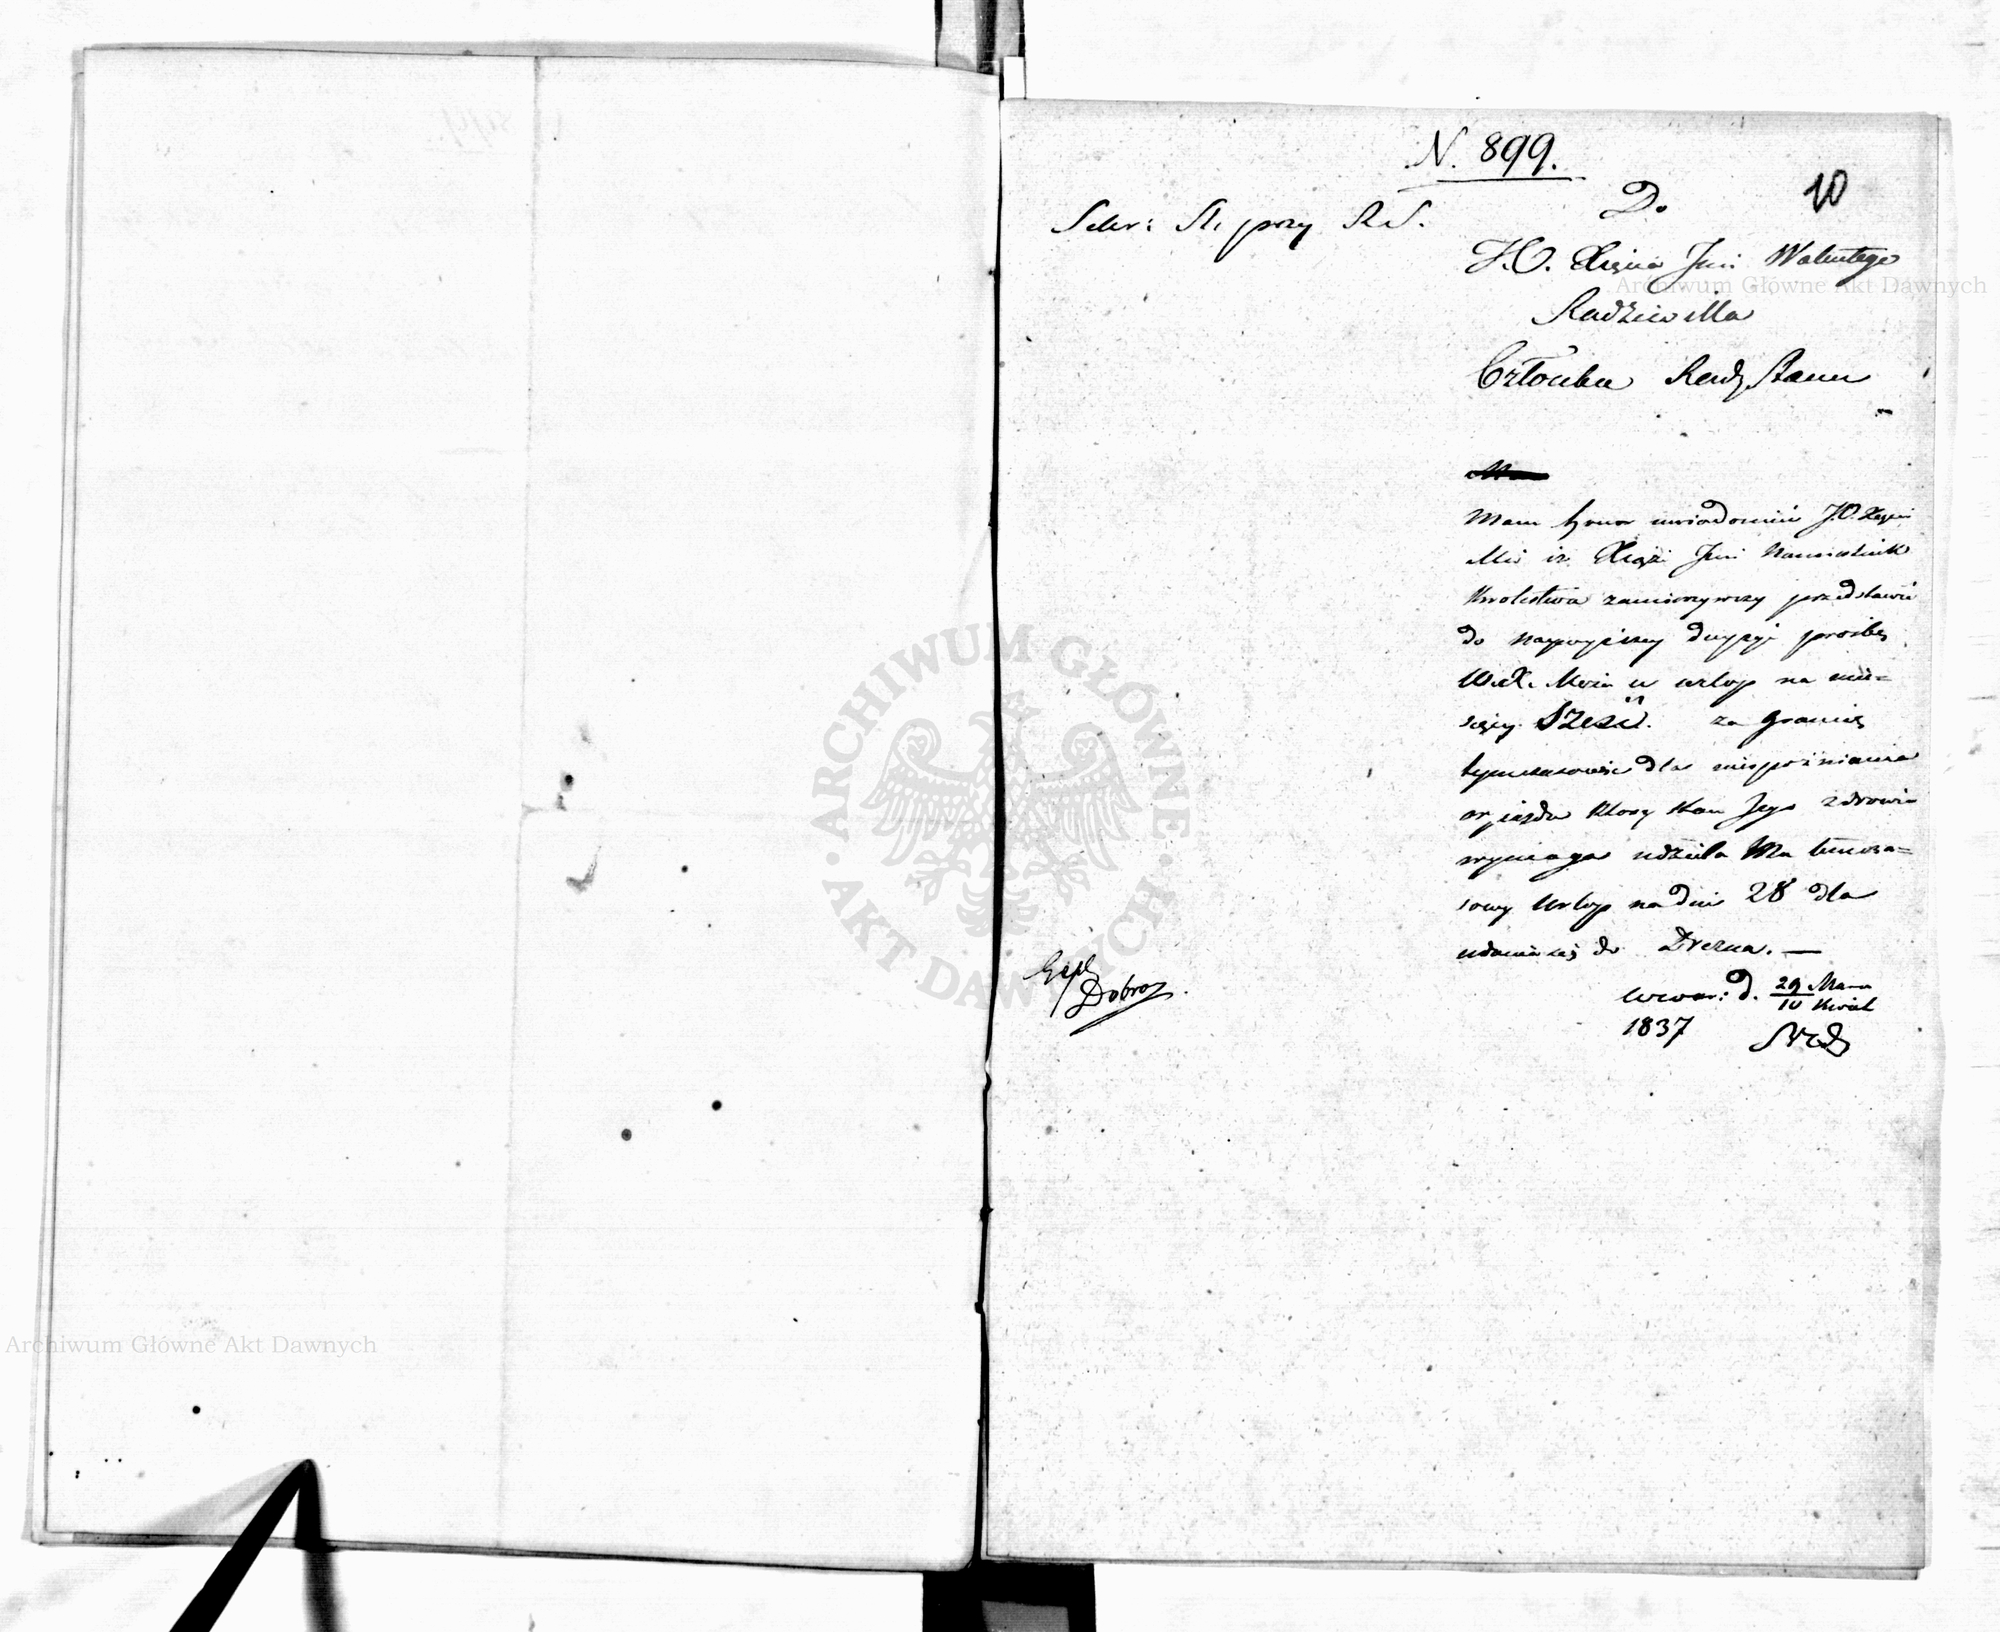 N. 899.
10
Sekr: St. przy R S.
Do
J.O. Xięcia Jmci Walentego
Radziwiłła
Członka Rady Stanu
Mam honor uwiadomić J.O. Xięcia
Mci iż Xiąże Jmci Namiestnik
Królestwa zamierzywszy przedstawić
do Najwyższey decyzyi prośbę
W.X. Mości o urlop na mie=
sięcy Sześć. za granicę
tymczasowie dla nieopóźniania
wyjazdu który stan Jego zdrowia
wymaga udziela Mu tymcza=
sowy urlop na dni 28 dla
udania się do Drezna. —
Dobro
w War: d. 29 Marca
10 Kwiet
1837
ARCHIWUM GŁÓWNE AKT DAWNYCH
Archiwum Główne Akt Dawnych
Archiwum Główne Akt Dawnych